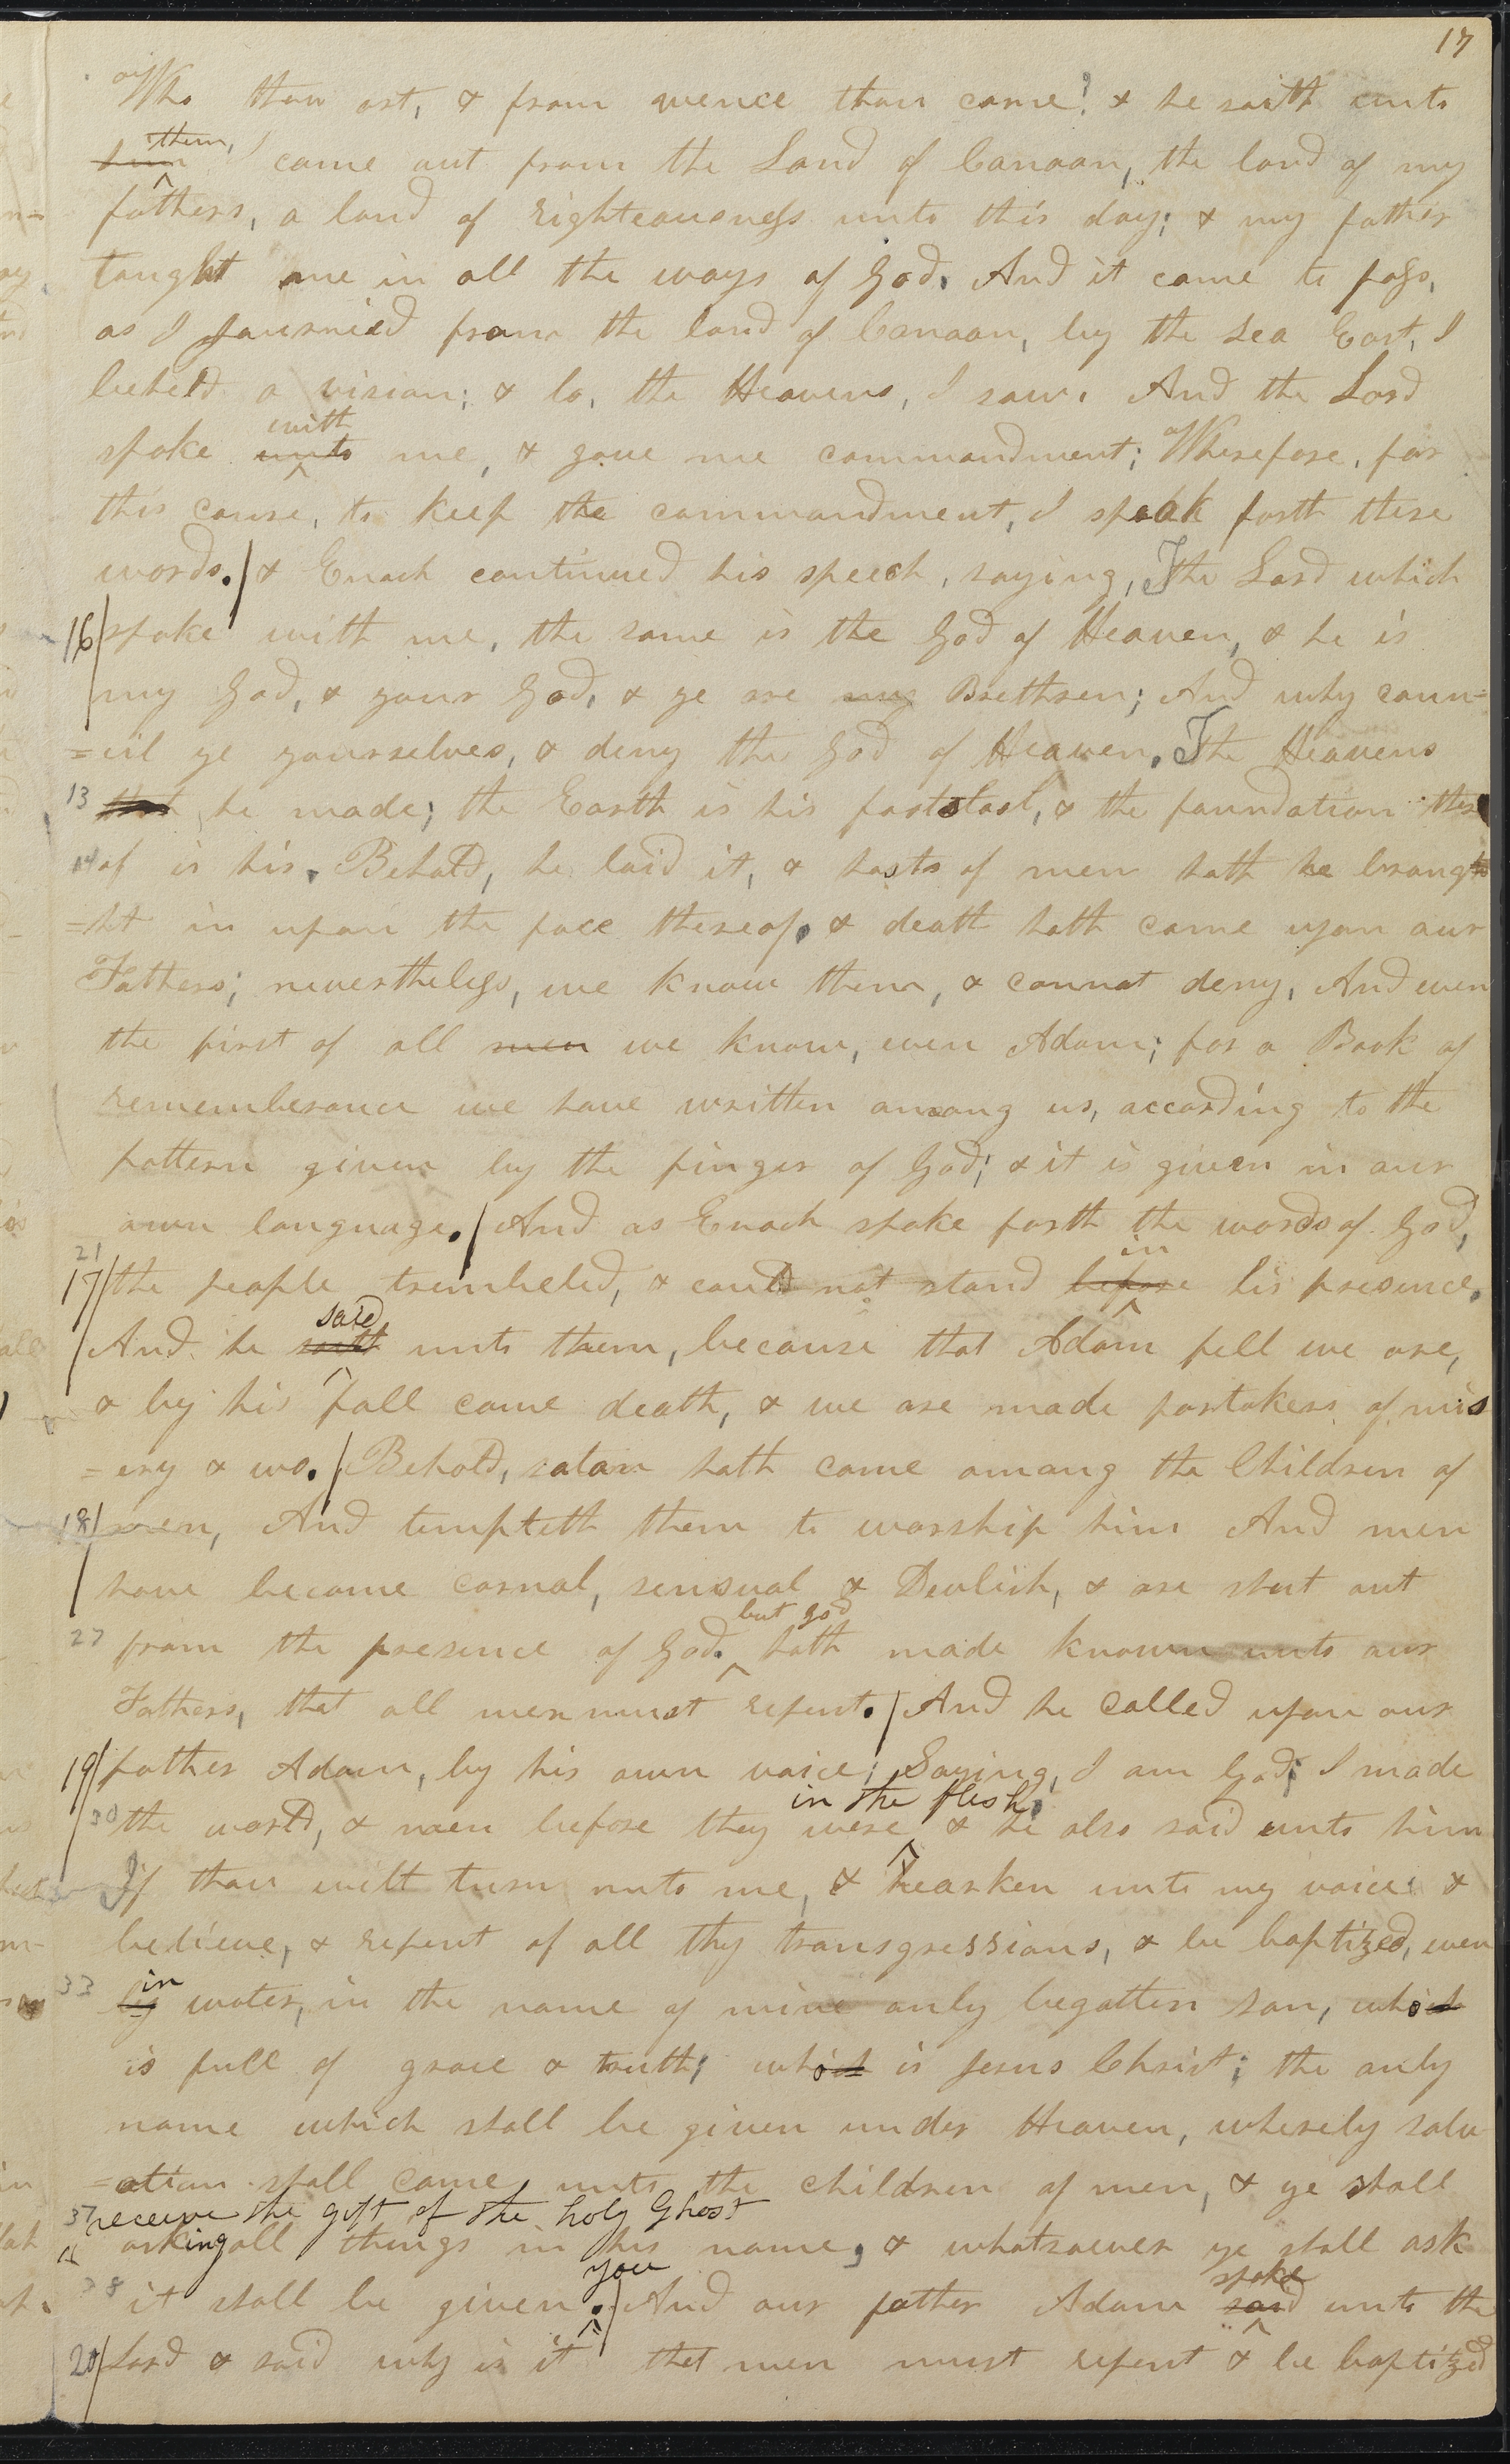 17
Who thou art, & from wence thou came? & he saith unto
them,
him I came out from the Land of Canaan, the land of my
fathers, a land of righteousness unto this day; & my father
taught me in all the ways of God. And it came to pass,
as I journied from the land of Canaan, by the sea East, I
beheld a vision; & lo, the Heavens, I saw. And the Lord
with
spoke unto me, & gave me commandment; Wherefore, for
this cause, to keep the commandment, I speak forth these
words. / & Enoch continued his speech, saying, The Lord which
16/ spoke with me, the same is the God of Heaven, & he is
my God, & your God, & ye are my Brethren; And why coun-
=cil ye yourselves, & deny the God of Heaven. The Heavens
13 that he made; the Earth is his footstool, & the foundation there
14 of is his. Behold, he laid it, & hosts of men hath he broug
=ht in upon the face thereof. & death hath come upon our
Fathers; nevertheless, we know them, & cannot deny, And even
the first of all men we know, even Adam; for a Book of
rememberance we have written among us, according to the
pattern given by the finger of God; & it is given in our
own language. / And as Enoch spoke forth the words of God,
21 in
17/ the people trembeled, & could not stand before his presence.
said
And he saith unto them, because that Adam fell we are,
& by his fall came death, & we are made partakers of mis
=ery & wo. / Behold, satan hath come among the Children of
18/ men, And tempteth them to worship him And men
have become carnal, sensual & Devlish, & are shut out
but god
27 from the presence of God. hath made known unto our
Fathers, that all men must repent. / And he called upon our
19/ father Adam, by his own voice; Saying, I am God; I made
in the flesh.
30 the world, & men before they were & he also said unto him
If thou wilt turn unto me, & hearken unto my voice & 
believe, & repent of all thy transgressions, & be baptized, even
in
33 by water, in the name of mine only begotten son, which
is full of grace & truth; which is Jesus Christ; the only
name which shall be given under Heaven, whereby salv
=ation shall come unto the children of men, & ye shall
37 receive the gift of the holy Ghost
asking all things in his name, & whatsoever ye shall ask
you spoke
38 it shall be given. / And our father Adam said unto the
20/ Lord & said why is it that men must repent & be baptized